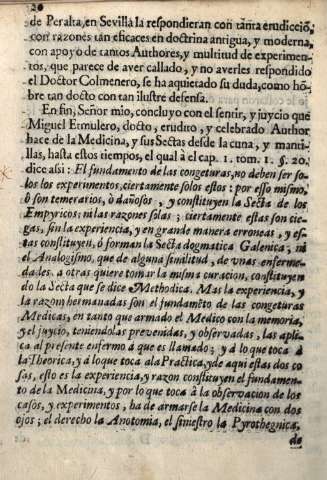 20
de Peralta, en Sevilla la respondieran con tanta erudicció,
con razones tan eficaces en doctrina antigua, y moderna,
con apoyo de tantos Authores, y multitud de experimen-
tos, que parece de aver callado, y no averles respondido
el Doctor Colmenero, se ha aquietado su duda, como hõ-
bre tan docto con tan ilustre defensa.
En fin, Señor mio, concluyo con el sentir, y juycio que
Miguel Etmulero, docto, erudito, y celebrado Author
hace de la Medicina, y sus Sectas desde la cuna, y manti-
llas, hasta estos tiempos, el qual à el cap. 1. tom. 1. §. 20.
dice assi: El fundamento de las congeturas, no deben ser so-
los los experimentos, ciertamente solos estos: por esso mismo,
ò son temerarios, ò dañosos, y constituyen la Secta de los
Empyricos: ni las razones solas; ciertamente estas son cie-
gas, sin la experiencia, y en grande manera erroneas, y es-
tas constituyen, ò forman la Secta dogmatica Galenica, ni
el Analogismo, que de alguna similitud, de unas enferme-
dades à otras quiere tomar la misma curacion, constituyen
do la Secta que se dice Methodica. Mas la experiencia, y
la razon hermanadas son el jundamẽto de las congeturas
Medicas, en tanto que armado el Medico con la memoria,
y el juycio, teniendolas prevenidas, y observadas, las apli-
ca al presente enfermo à que es llamado; y à lo que toca à
la Theorica, y à lo que toca à la Practica, y de aqui estas dos co
sas, esto es la experiencia, y razon constituyen el fundamen-
to de la Medicina, y por lo que toca à la observacion de los
casos, y experimentos, ha de armarse la Medicina con dos
ojos; el derecho la Anotomia, el siniestro la Pyrothegnica,
de